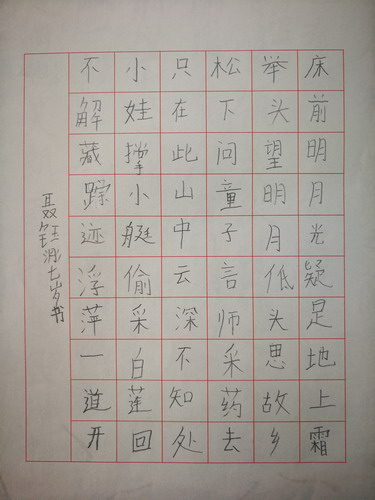 床前明月光疑足地上霜
举头望明月低头思故乡
松下问童子言师采药去
只在此山中云深不知处
小娃撑小艇偷采白莲回
不解藏踪迹浮萍一道开
聂七岁书